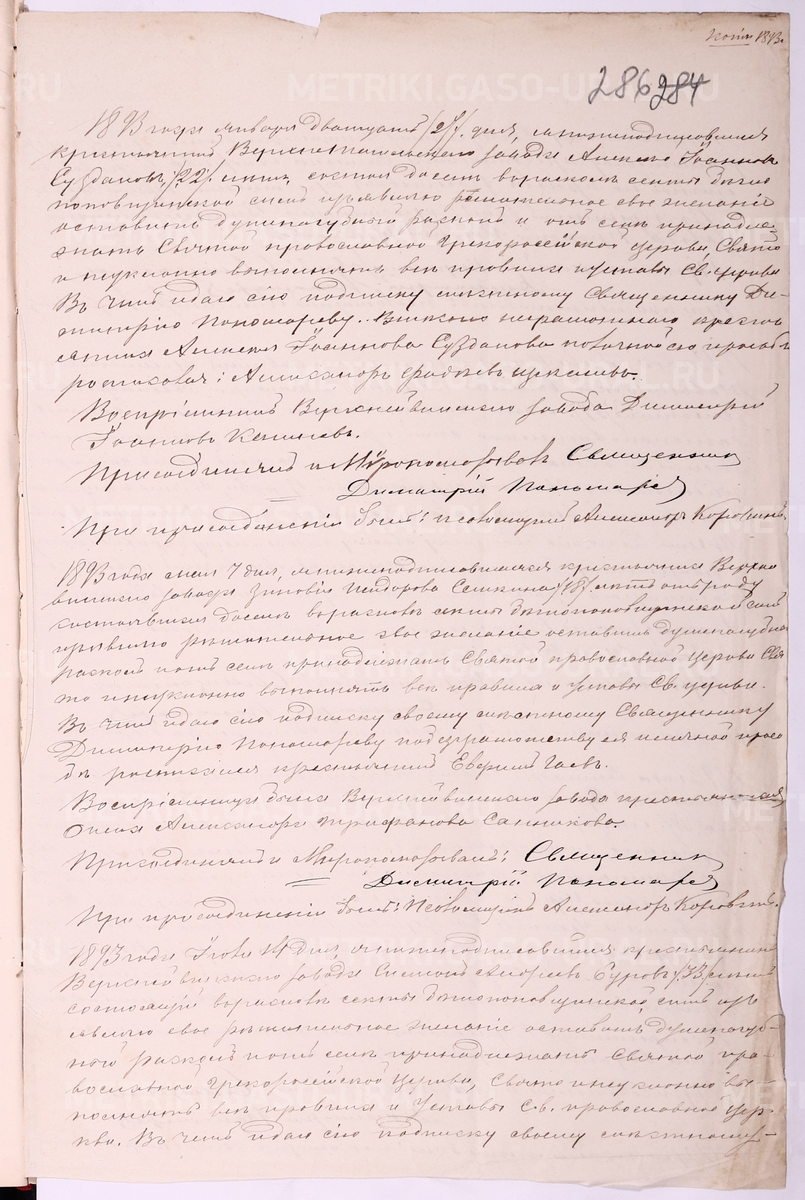 Копія 1893.
286 284
1893 года января двадцать /27/ дня, я нижеподписавшійся
крестьянинъ Верхне завода Алексей Іоанновъ
Суздаловъ, /22/ летъ, состоя досель въ расколе секты бегло
поповщинской симъ изъявляю решительное свое желаніе
оставить душепагубный расколъ и отъ селе принадле-
жать Святой православной Грекороссійской церкви, Свято
и неуклонно выполнять все правила и уставы Св. церкви
Въ чемъ и даю сію подписку Священнику Ди-
митрію Пономареву. Вместо неграмотнаго кресть
янина Алексея Іоаннова Суздалова по личной его просьбе
росписался: Александръ
Воспріемникъ Верхнейвинскаго завода Димитрій
Іоанновъ
Присоединялъ и Мѵропомазовалъ Священникъ
Димитрій Пономаревъ
При присоединеніи былъ: псаломщикъ Александръ Коровинъ
1893 года мая 7 дня, я нижеподписавшаяся крестьянка Верхне
винскаго завода Зиновія Исидорова Селкина /18/ летъ отъ роду
состоявшая досель въ расколе секты беглопоповщинской симъ
изъявляю решительное свое желаніе оставить душепагубный
расколъ и отъ селе принадлежать Святой православной Церкви Свя-
то и неуклонно выполнять все правила и Уставы Св. церкви.
Въ чемъ и даю сію подписку своему Священнику
Димитрію Пономареву по безграмотству ея и личной прось
бе росписался крестьянинъ Евгеній Гаевъ.
Воспріемницей была Верхнейвинскаго завода крестьянская
Александра Трифанова Санникова.
Присоединялъ и Миропомазовалъ: Священникъ
Димитрій Пономаревъ
При присоединеніи былъ: Псаломщикъ Александръ Коровинъ.
1893 года Іюня 14 дня, я нижеподписавшійся крестьянинъ
Верхнейвинскаго завода Андреевъ Суровъ /33/ летъ
состоящій въ расколе секты беглопоповщинской, симъ изъ
являю свое решительное желаніе оставить душепагуб-
ный расколъ и отъ селе принадлежать Святой пра-
вославной Грекороссійской Церкви, Свято и неуклонно вы-
полнять все правила и Уставы Св. православной Цер-
кви. Въ чемъ и даю сію подписку своему